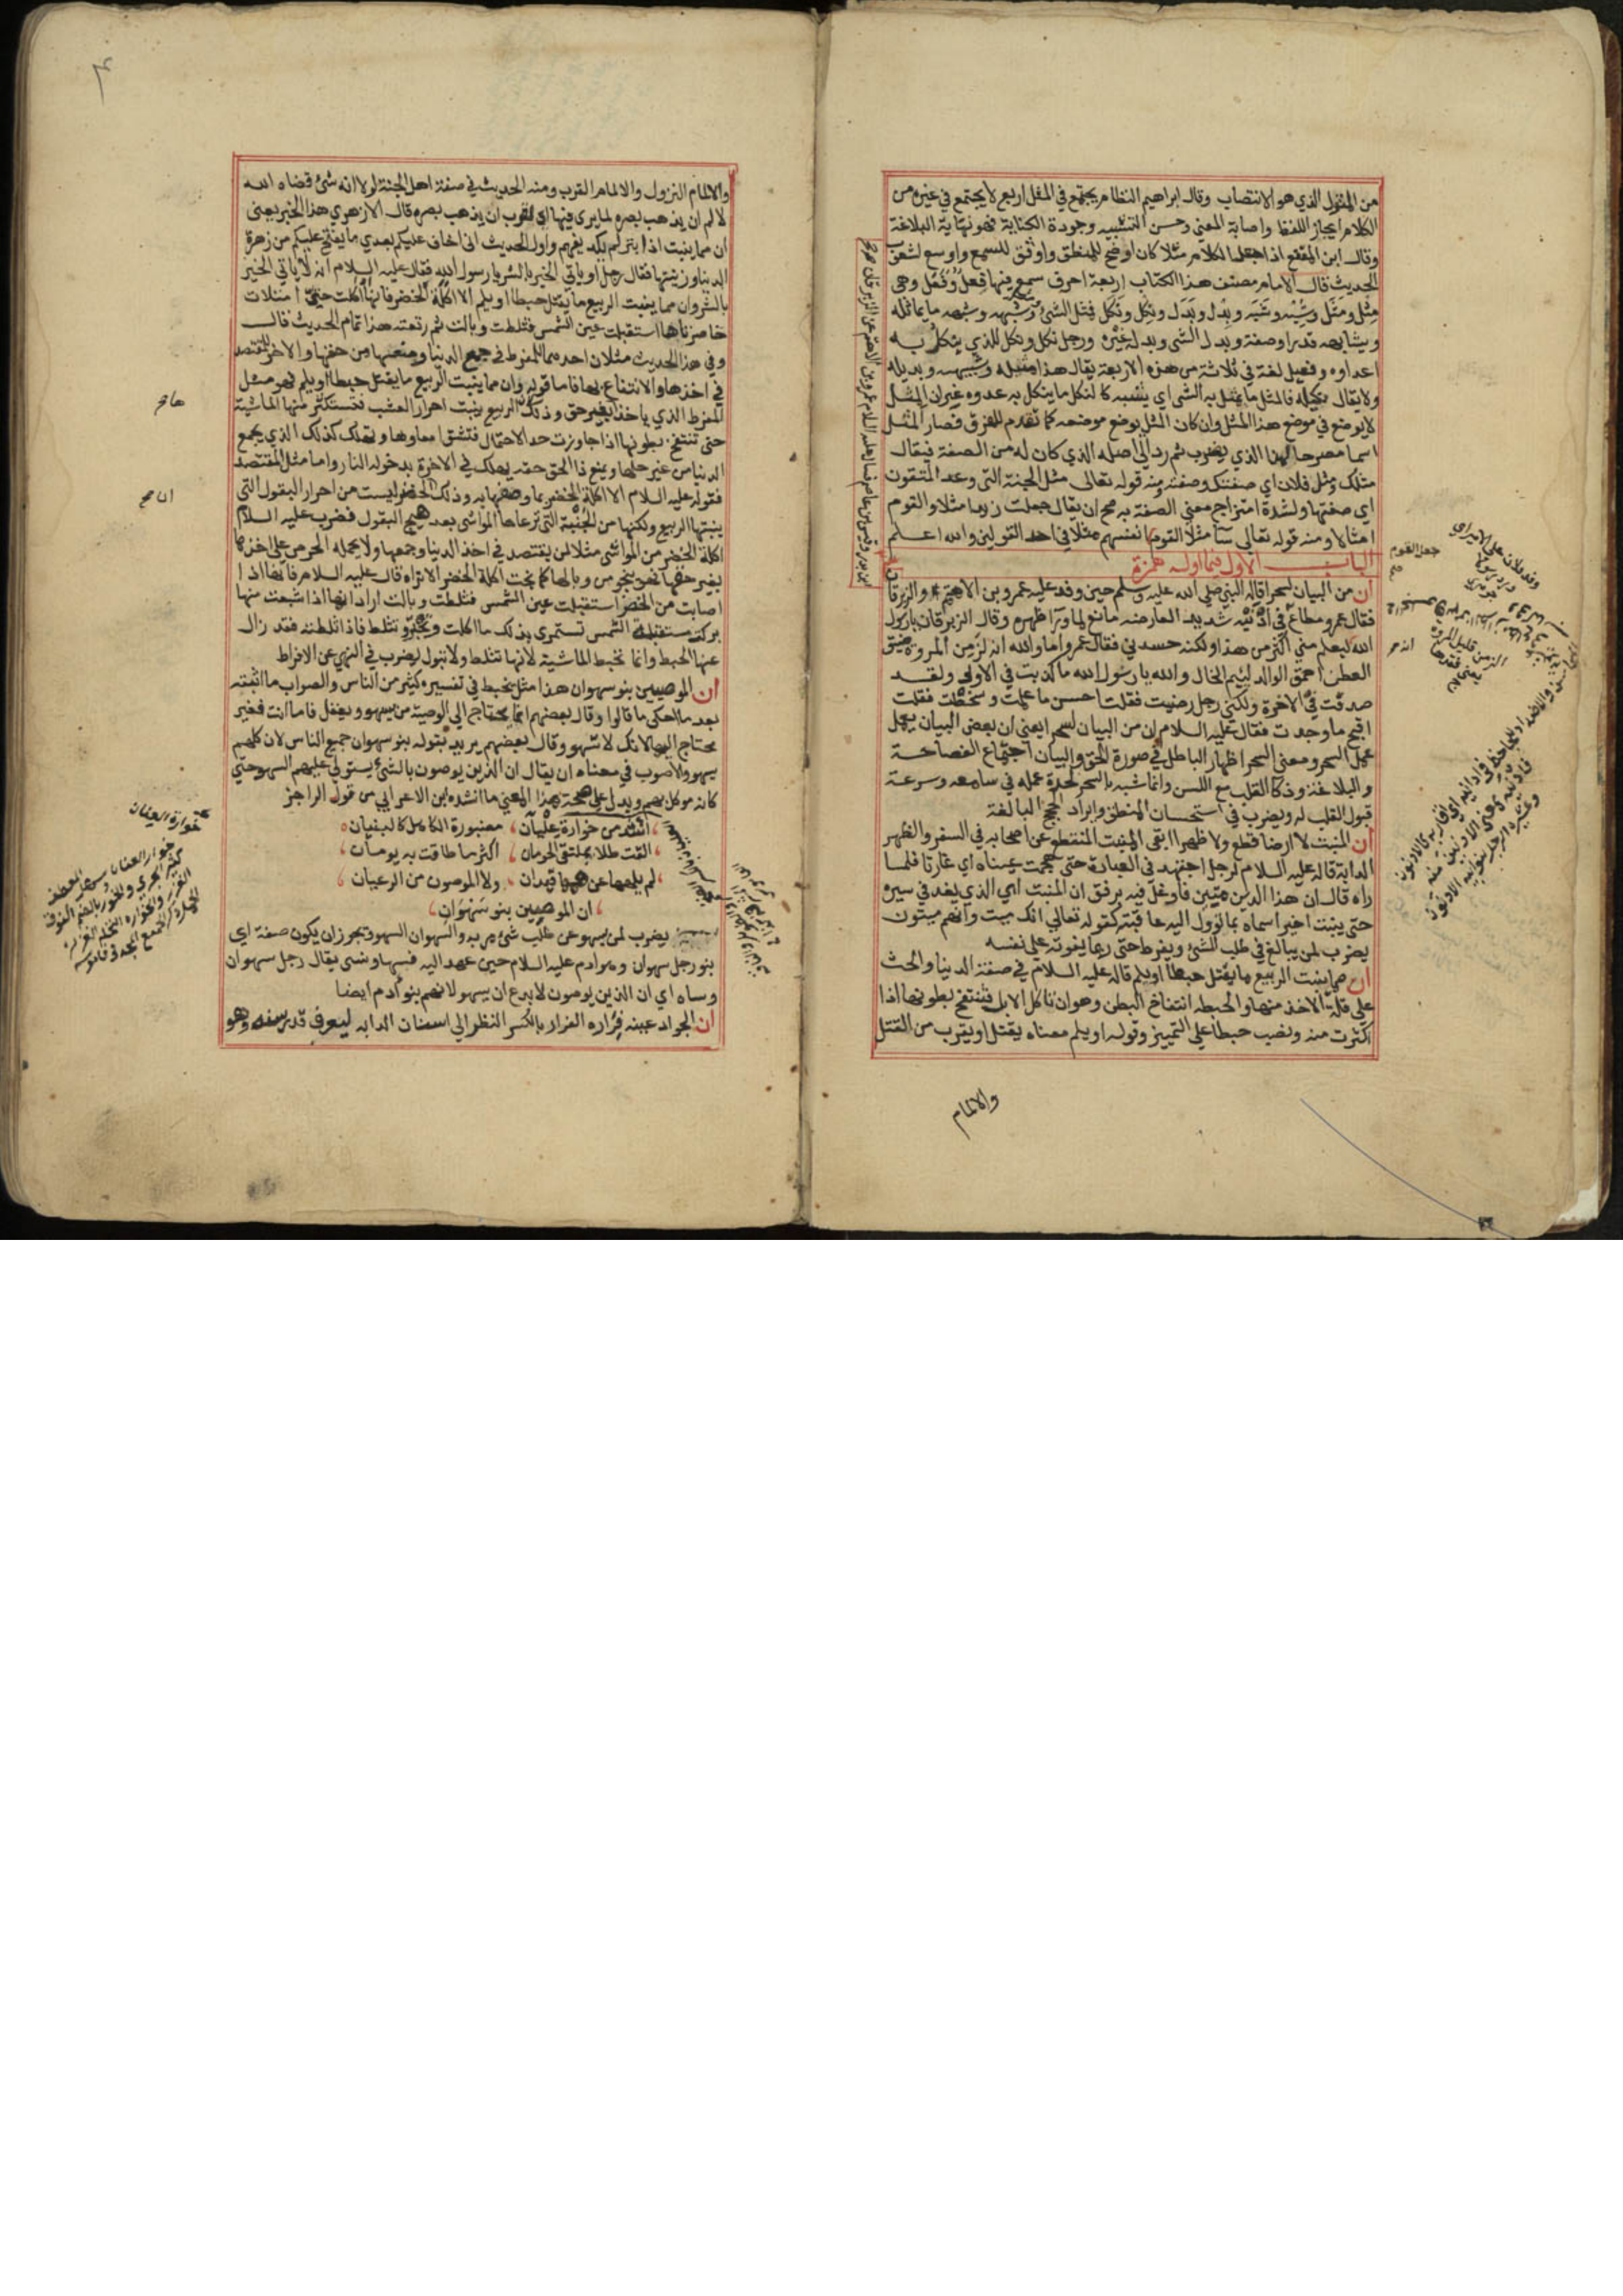 من المثول الذي هو الانتصاب وقال ابراهيم النظام يجتمع في المثل اربع لا يجتمع في غيره من
الكلام ايجاز اللفظ واصابة المعنى وحسن التشبيه وجودة الكناية فهو نهاية البلاغة
وقال ابن المقفع اذا جعل الكلام مثلا كان اوضح للمنطق واوثق للسمع واوسع لشعوب
الحديث قال الامام مصنف هذا الكتاب اربعة احرف سمع فيها فِعْل وفَعَل وهي
مِثْل ومَثَل وشِبْه وشَبَه وبِدْل وبَدَل ونِكْل ونَكَل فمثل الشئ وشبهه ما يماثله
ويشابهه قدرا وصفة وبدل الشئ وبدله غيره ورجل نكل ونكل للذي ينكل به
اعداوه وفعيل لغة في ثلاثة من هذه الاربعة يقال هذا مثيله وشبيهه وبديله
ولا يقال نكيله فالمثل ما يمثل به الشئ اي يشبه كالنكل ما ينكل به عدوه غير ان المثل
لا يوضع في موضع هذا المثل وان كان المثل يوضع موضعه كما تقدم للفرق فصار المثل
اسما مصرحا لهذا الذي يضرب ثم يرد الى اصله الذي كان له من الصفة فيقال
مثلك ومثل فلان اي صفتك وصفته ومنه قوله تعالى مثل الجنة التي وعد المتقون
اي صفتها ولشدة امتزاج معنى الصفة به صح ان يقال جعلت زيدا مثلا والقوم
امثالا ومنه قوله تعالى سآ مثلا القوم انفسهم مثلا في احد القولين والله اعلم
الباب الاول فيما اوله همزة
ان من البيان لسحرا قاله النبي صلى الله عليه وسلم حين وفد عليه عمرو بن الاهتم والزبرقان
فقال عمرو مطاع في ادنيه شديد العارضه مانع لما ورآ ظهره وقال الزبرقان يا رسول
الله ليعلم مني اكثر من هذا ولكنه حسدني فقال عمرو اما والله انه لزمن المروة ضيق
العطن احمق الوالد لئيم الخال والله يا رسول الله ما كذبت في الاولى ولقد
صدقت في الاخرة ولكني رجل رضيت فقلت احسن ما علمت وسخطت فقلت
اقبح ما وجدت فقال عليه السلام ان من البيان لسحرا يعني ان بعض البيان يعمل
عمل السحر ومعنى السحر اظهار الباطل في صورة الحق والبيان اجتماع الفصاحة
والبلاغة وذكا القلب مع اللسن وانما شبه بالسحر لحدة عمله في سامعه وسرعة
قبول القلب له ويضرب في استحسان المنطق وايراد الحجج البالغة
ان المنبت لا ارضا قطع ولا ظهرا ابقى المنبت المنقطع عن اصحابه في السفر والظهر
الدابة قاله عليه السلام لرجل اجتهد في العبادة حتى هجمت عيناه اي غارتا فلما
راه قال ان هذا الدين متين فاوغل فيه برفق ان المنبت اي الذي يغد في سيره
حتى ينبت اخيرا سماه بما تؤول اليه عاقبته كقوله تعالى انك ميت وانهم ميتون
يضرب لمن يبالغ في طلب الشئ ويفرط حتى ربما يفوته على نفسه
ان مما ينبت الربيع ما يقتل حبطا او يلم قاله عليه السلام في صفة الدنيا والحث
على قلة الاخذ منها والحبط انتفاخ البطن وهو ان تاكل الابل فتنتفخ بطونها اذا
اكثرت منه ونصب حبطا على التمييز وقوله او يلم معناه يقتل او يقرب من القتل
والالمام
جعل القوم
صح
۴
والالمام النزول والالمام القرب ومنه الحديث في صفة اهل الجنة لولا انه شئ قضاه الله
لالم ان يذهب بصره لما يرى فيها اي لقرب ان يذهب بصره قال الازهري هذا الخبر يعنى
ان مما ينبت اذا بتر لم يكد يفهم واول الحديث اني اخاف عليكم بعدي ما يفتح عليكم من زهرة
الدنيا وزينتها فقال رجل او ياتي الخير بالشر يا رسول الله فقال عليه السلام انه لا ياتي الخير
بالشر وان مما ينبت الربيع ما يقتل حبطا او يلم الا اكلة الخضر فانها اكلت حتى امتلات
خاصرتاها استقبلت عين الشمس فثلطت وبالت ثم رتعت هذا تمام الحديث قال
وفي هذا الحديث مثلان احدهما للمفرط في جمع الدنيا ومنعها من حقها والاخر للمقتصد
في اخذها والانتفاع بها فاما قوله وان مما ينبت الربيع ما يقتل حبطا او يلم فهو مثل
المفرط الذي ياخذ بغير حق وذلك ان الربيع ينبت احرار العشب فتستكثر منها الماشية
حتى تنتفخ بطونها اذا جاوزت حد الاحتمال فتنشق امعاوها وتهلك كذلك الذي يجمع
الدنيا من غير حلها ويمنع ذا الحق حقه يهلك في الاخرة بدخوله النار واما مثل المقتصد
فقوله عليه السلام الا اكلة الخضر بما وصفها به وذلك ان الخضر ليست من احرار البقول التي
ينبتها الربيع ولكنها من الجنبة التي ترعاها المواشي بعد هيج البقول فضرب عليه السلام
اكلة الخضر من المواشي مثلا لمن يقتصد في اخذ الدنيا وجمعها ولا يحمله الحرص على اخذها
بغير حقها فهو ينجو من وبالها كما نجت اكلة الخضر الا تراه قال عليه السلام فانها اذا
اصابت من الخضر استقبلت عين الشمس فثلطت وبالت اراد انها اذا شبعت منها
بركت مستقبلة الشمس تستمري بذلك ما اكلت وتجتر وتثلط فاذا ثلطته فقد زال
عنها الحبط وانما تحبط الماشية لانها لا تثلط ولا تبول يضرب في النهي عن الافراط
ان الموصين بنو سهوان هذا مثل يخبط في تفسيره كثير من الناس والصواب ما اثبته
بعد ما احكى ما قالوا وقال بعضهم انما يحتاج الى الوصية من يسهو ويغفل فاما انت فغير
محتاج اليها لانك لا تسهو وقال بعضهم يريد بقوله بنو سهوان جميع الناس لان كلهم
يسهو والاصوب في معناه ان يقال ان الذين يوصون بالشئ يستولي عليهم السهو حتى
كانه موكل بهم ويدل على صحة هذا المعنى ما انشده ابن الاعرابي من قول الراجز
انشد من خوارة عليان، مضبورة الكاهل كالبنيان
القت طلا بملتقى الحومان، اكثر ما طاقت به يومان
لم يلهها عن همها قيدان، ولا الموصون من الرعيان
ان الموصين بنو سَهْوَانِ
يضرب لمن يسهو عن طلب شئ امر به والسهوان السهو ويجوز ان يكون صفة اي
بنو رجل سهوان وهو ادم عليه السلام حين عهد اليه فسها ونسى يقال رجل سهوان
وساه اي ان الذين يوصون لا بدع ان يسهو لانهم بنو آدم ايضا
ان الجواد عينه فراره الفرار بالكسر النظر الى اسنان الدابه ليعرف قدر سنه وهو